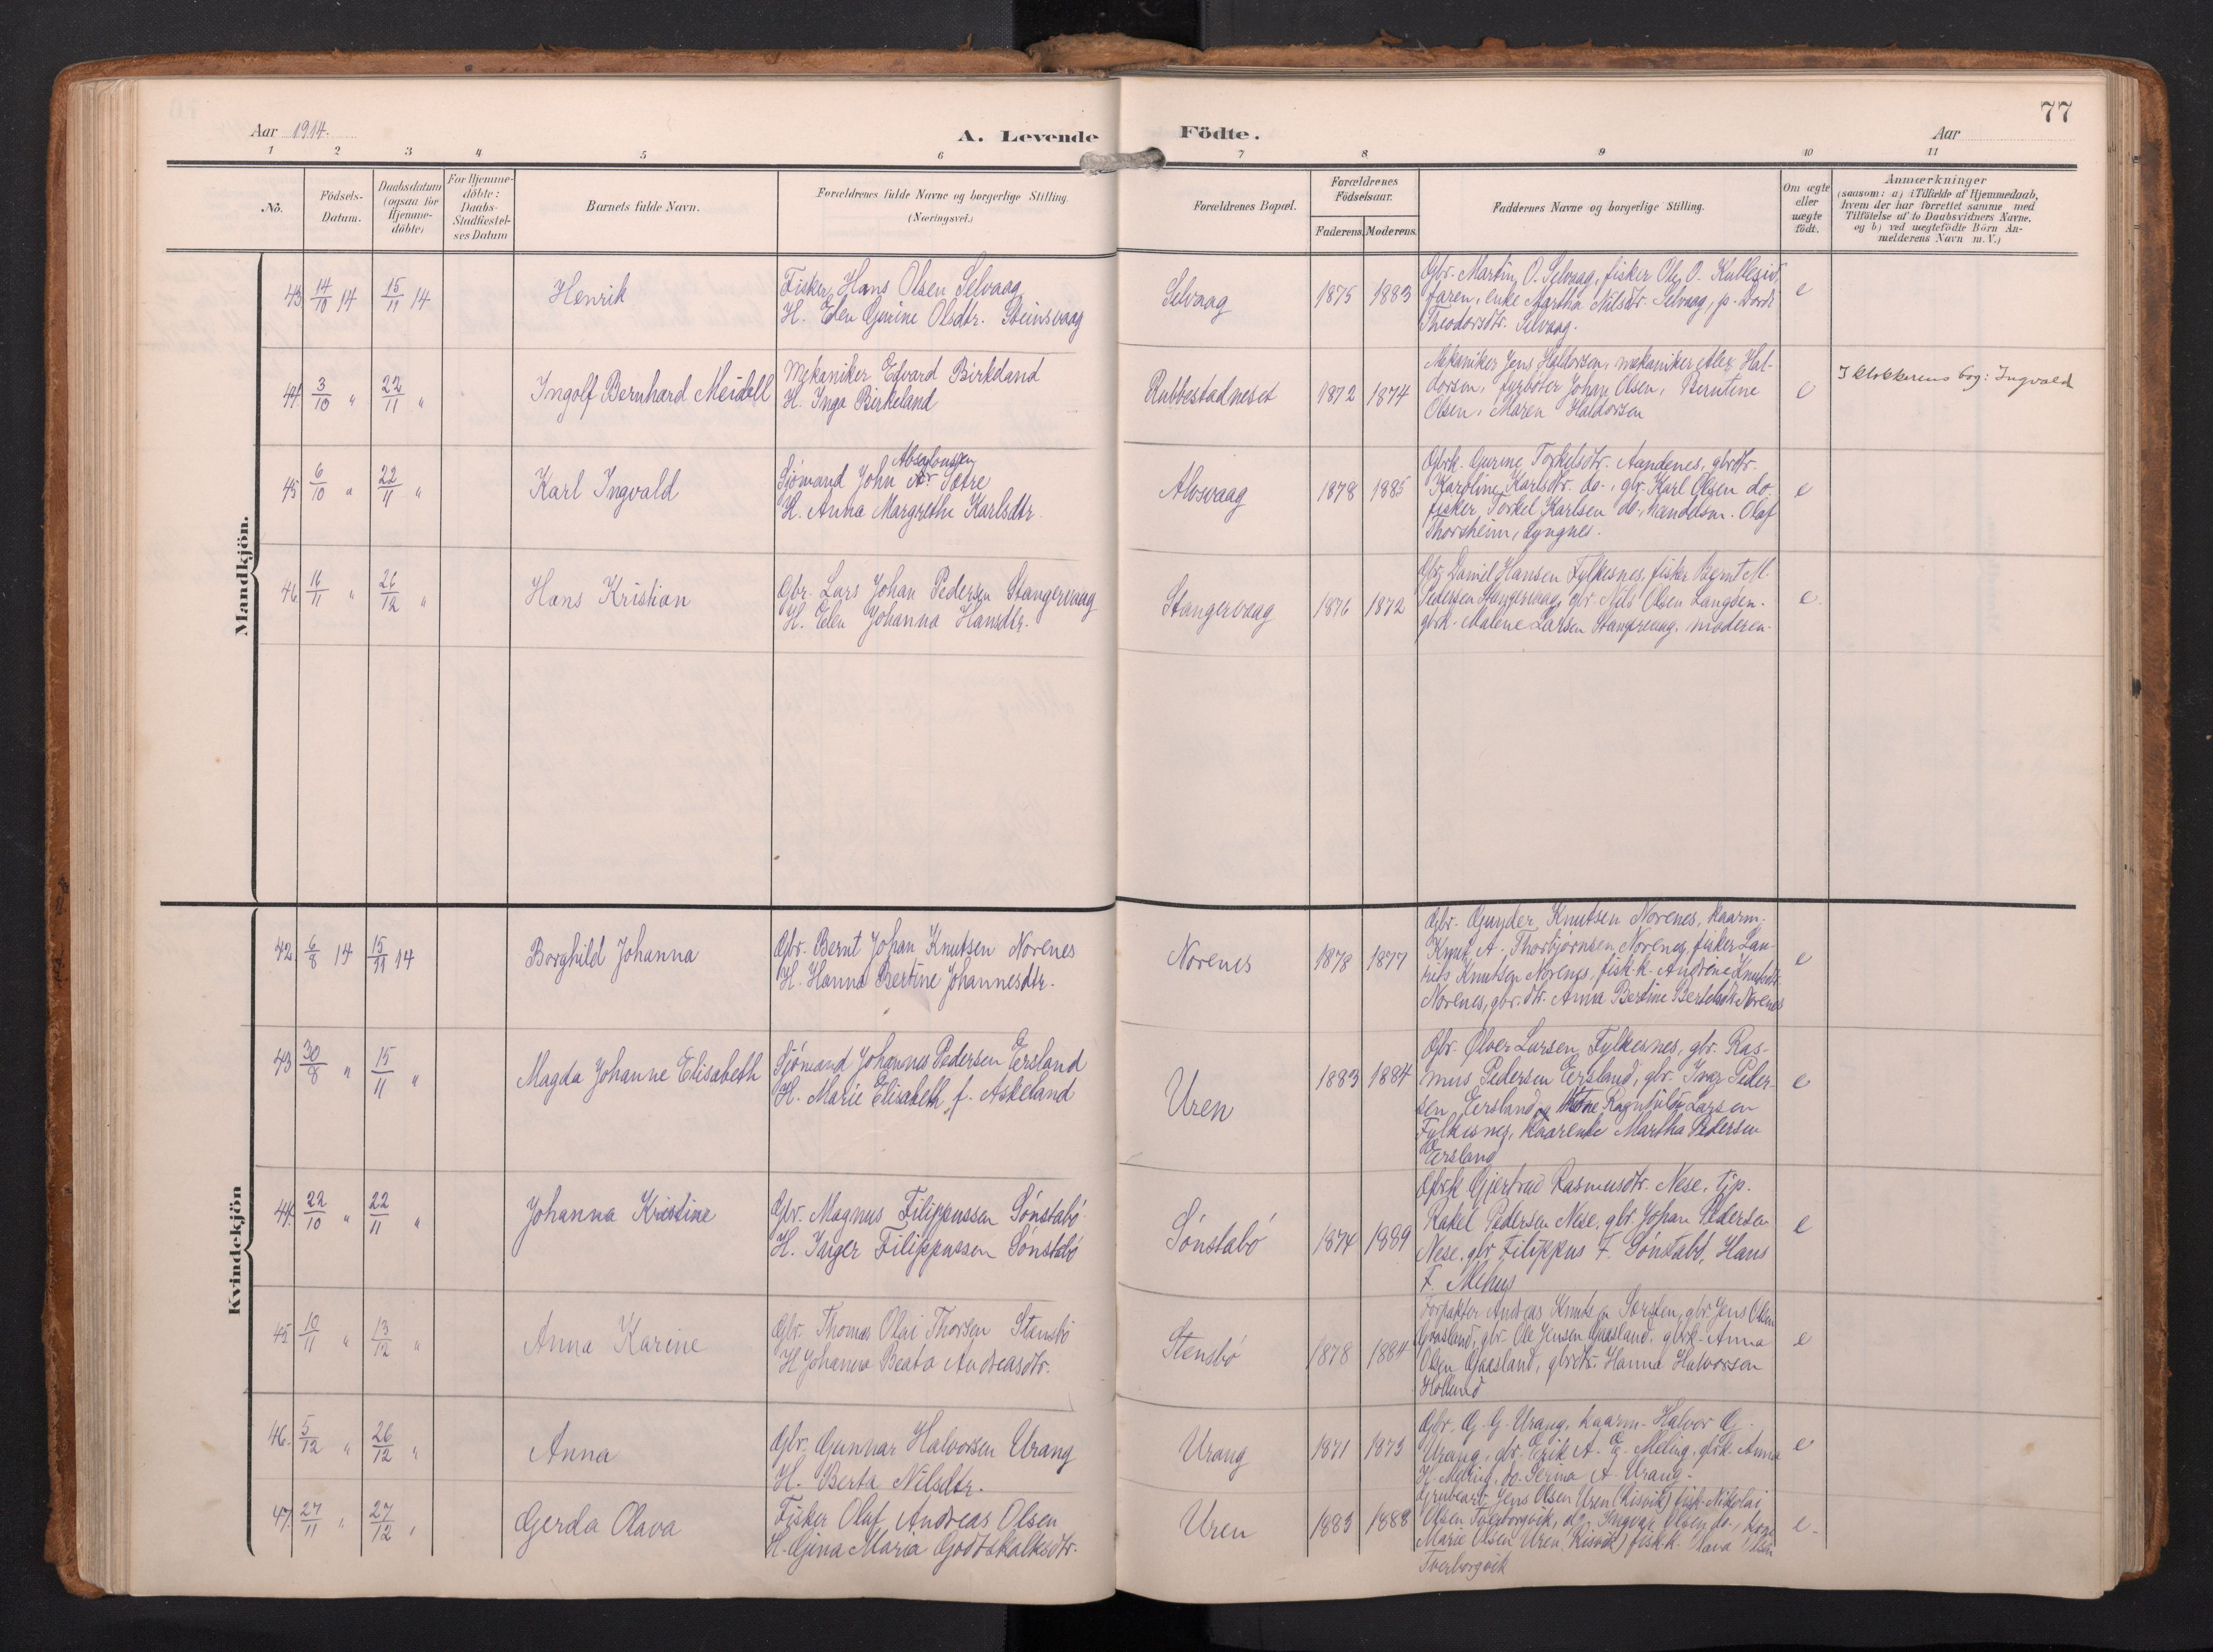 77
Aar 1914.
A. Levende Födte.
Aar
1 2 3 4 5 6 7 8 9 10 11
No.
Födsels-
Datum.
Daabsdatum
(ogsaa for
Hjemme-
döbte)
For Hjemme-
döbte:
Daabs-
Stadfæstel-
ses Datum
Barnets fulde Navn.
Forældrenes fulde Navne og borgerlige Stilling
(Næringsvei.)
Forældrenes Bopæl.
Forældrenes
Födselsaar.
Faderens. Moderens.
Faddernes Navne og borgerlige Stilling.
Om ægte
eller
uægte
födt.
Anmærkninger
(saasom: a) i Tilfælde af Hjemmedaab,
hvem der har forrettet samme med
Tilföielse af to Daabsvidners Navne.
og b) ved uægtefödte Börn An-
melderens Navn m. V.)
Mandkjön.
43 14/10 14 15/11 14 Henrik
Fisker Hans Olsen Selvaag
H. Elen Gurine Olsdtr. Steinsvaag
Selvaag 1875 1883
Gbr. Martin O. Selvaag, fisker Ole O. Kulleseid,
faren, enke Martha Nilsdtr. Selvaag, p. Dorde
Theodorsdtr. Selvaag.
e
44 3/10 " 22/11 " Ingolf Bernhard Meidell
Mekaniker Edvard Birkeland
H. Inga Birkeland
Rubbestadneset 1872 1874
Mekaniker Jens Haldorsen, mekaniker Alex Hal-
dorsen, fyrböter Johan Olsen, Berntine
Olsen, Maren Haldorsen
e
I klokkerens bog: Ingvald
45 6/10 " 22/11 " Karl Ingvald
Absalonsen
Sjömand John Sætre
H. Anna Margrethe Karlsdtr.
Alvsvaag 1878 1885
Gbrk. Gurine Torkelsdtr. Aandenes, gbrdtr.
Karoline Karlsdtr. do., gbr. Karl Olsen do.
fisker Torkel Karlsen do., handelsm. Olaf
Thorsheim, Lyngnes.
e
46 16/11 " 26/12 " Hans Kristian
Gbr. Lars Johan Pedersen Stangervaag
H. Elen Johanna Hansdtr.
Stangervaag 1876 1872
Gbr. Daniel Hansen Fylkesnes, fisker Bernt M.
Pedersen Stangervaag, gbr. Nils Olsen Langsen.
gbrk. Malene Larsen Stangervaag. moderen.
e.
Kvindekjön
42 6/8 14 15/11 14 Borghild Johanna
Gbr. Bernt Johan Knutsen Norenes
H. Hanna Bertine Johannesdtr.
Norenes 1878 1877
Gbr. Knutsen Norenes, kaarm.
Knut A. Thorbjörnsen Norenes, fisker Lau-
rits Knutsen Norenes, fisk.k. Andrine Knutsdtr.
Norenes, gbr. dtr. Anna Bertine Bertelsdtr. Norenes
e
43 30/8 " 15/11 " Magda Johanne Elisabeth
Sjömand Johannes Pedersen Eersland
H. Marie Elisabeth f. Askeland
Uren 1883 1884
Gbr. Ølver Larsen Fylkesnes, gbr. Ras-
mus Pedersen Eersland, gbr. Ivar Peder-
sen Eersland, Ragnhilda Larsen
Fylkesnes, kaarenke Martha Pedersen
Eersland
e
44. 22/10 " 22/11 " Johanna Kristine
Gbr. Magnus Filippussen Sönstabö
H. Inger Filippussen Sönstabö
Sönstabö 1874 1889
Gbrk Gjertrud Rasmusdtr. Nese, tjp.
Rakel Pedersen Nese, gbr. Johan Pedersen
Nese, gbr. Filippus F. Sönstabö, Hans
F. Mehus
e
45 10/11 " 13/12 " Anna Karine
Gbr. Thomas Olai Thorsen Stensbö
H Johanna Beata Andreasdtr.
Stensbö 1878 1884
Forpakter Andreas Knutsen, gbr. Jens Olsen
Gaasland, gbr. Ole Jensen Gaasland, gbrk. Anna
Olsen Gaasland, gbrdtr. Hanna Halvorsen
Holland
e
46. 5/12 " 26/12 " Anna
Gbr. Gunnar Halvorsen Urang
H. Berta Nilsdtr.
Urang 1871 1873
Gbr. G. G. Urang, kaarm. Halvor G.
Urang, gbr. Erik A. E. Meling, gbrk. Anna
H. Meling, do. Serina A. Urang.
e
47. 27/11 " 27/12 " Gerda Olava
Fisker Olaf Andreas Olsen
H. Gina Maria Godtskalksdtr.
Uren 1883 1888
Grubearb. Jens Olsen Uren (Kisvik) fisk. Nikolai
Olsen Tverborgvik, Ingvar Olsen do.,
Marie Olsen Uren (Kisvik) fisk.k. Olava Olsen
Tverborgvik
e.